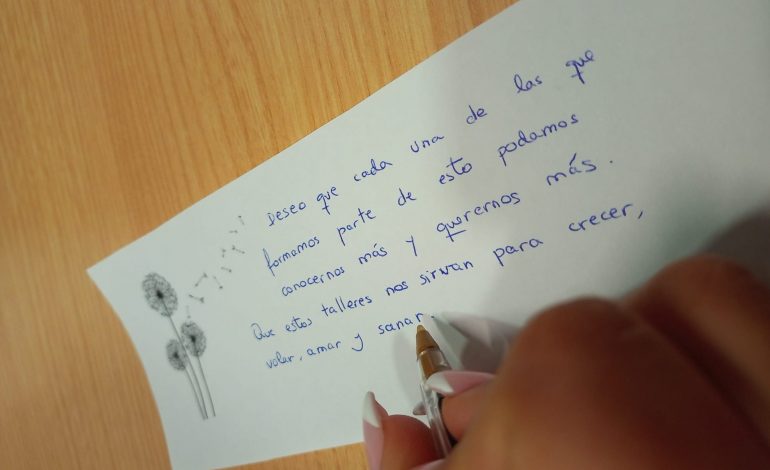 Deseo que cada una de las que
formamos parte de esto podamos
conocernos más y querernos más.
Que estos talleres nos sirvan para crecer,
volar, amar y sanar.